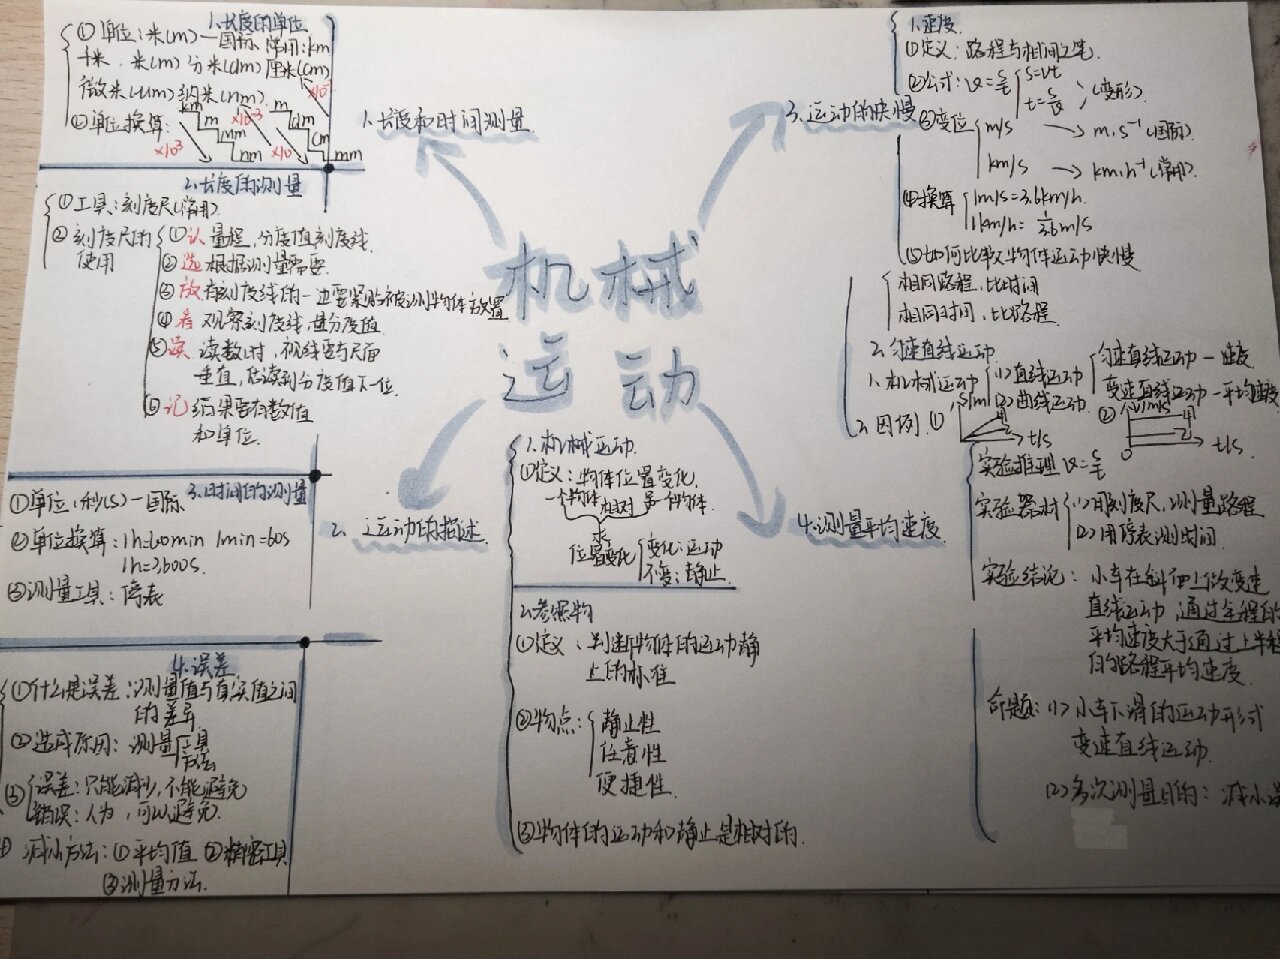 机械
运动
1.长度和时间测量
1.长度的单位
①单位:米(m)—国际 常用:km
千米、米(m) 分米(dm) 厘米(cm)
微米(um) 纳米(nm)
②单位换算:
km m mm nm
×10³ ×10⁻³
m dm cm mm
×10
2.长度的测量
①工具:刻度尺(常用)
②刻度尺的使用
①认 量程,分度值,刻度线
②选 根据测量需要
③放 有刻度线的一边要紧贴被测物体放置
④看 观察刻度线,量分度值
⑤读 读数时,视线要与尺面
垂直,估读到分度值下一位
⑥记 结果要有数值
和单位
3.时间的测量
①单位:秒(s)—国际
②单位换算:1h=60min 1min=60s
1h=3600s
③测量工具:停表
4.误差
①什么是误差:测量值与真实值之间
的差异
②造成原因:测量 工具
方法
③误差:只能减少,不能避免
错误:人为,可以避免
减小方法:①平均值 ②精密工具
③测量方法
2. 运动的描述
1.机械运动
①定义:物体位置变化
一个物体 相对 另一个物体
位置变化
变化:运动
不变:静止
2.参照物
①定义:判断物体的运动静
止的标准
②物点:静止性
任意性
便捷性
③物体的运动和静止是相对的
3.运动的快慢
1.速度
①定义:路程与时间之比
②公式:v=s/t s=vt
t=s/v (变形)
③变位 m/s → m·s⁻¹(国际)
km/s → km·h⁻¹(常用)
④换算 1m/s=3.6km/h
1km/h=1/3.6m/s
⑤如何比较物体运动快慢
相同路程,比时间
相同时间,比路程
2.匀速直线运动
1.机械运动 (1)直线运动 匀速直线运动—速度
(2)曲线运动 变速直线运动—平均速度
2.图例 ① s/m t/s ② v/m/s t/s 0
4.测量平均速度
实验推理 v=s/t
实验器材 (1)用刻度尺,测量路程
(2)用停表测时间
实验结论:小车在斜面上做变速
直线运动,通过全程的
平均速度大于通过上半程
的路程平均速度
命题:(1)小车下滑的运动形式
变速直线运动
(2)多次测量目的:减小误